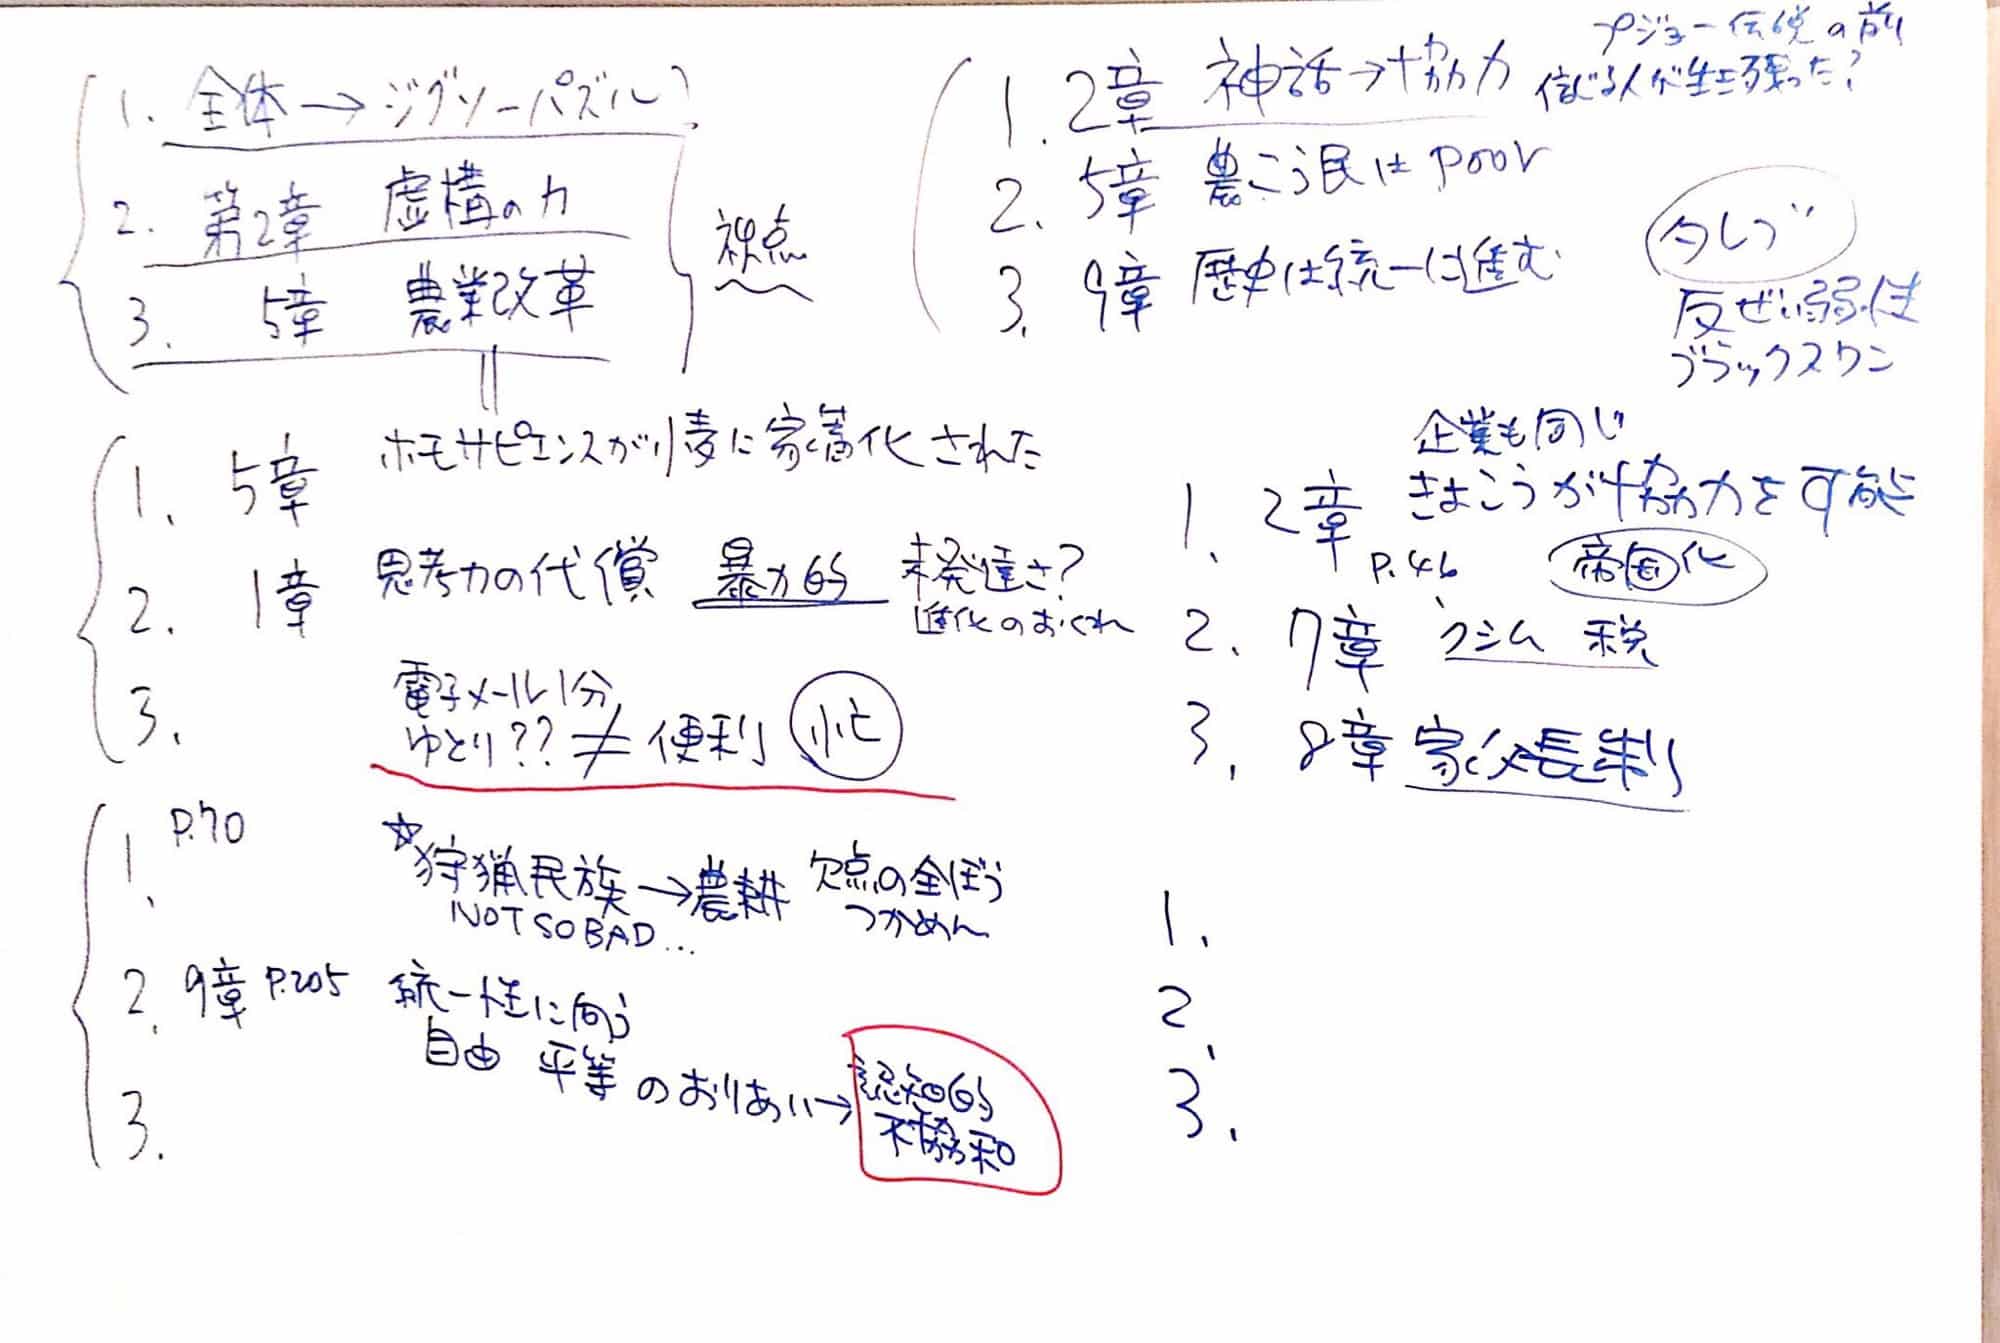 1. 全体→ジグソーパズル
2. 第2章 虚構の力
3. 5章 農業改革
視点
1. 5章 ホモサピエンスが小麦に家畜化された
2. 1章 思考力の代償 暴力的 未発達さ?
進化のおくれ
3. 電子メール1分
ゆとり?? ≠ 便利 忙
1. P.70 ☆狩猟民族→農耕 欠点の全ぼう
NOT SO BAD... つかめん
2. 9章 P.205 統一性に向う
自由 平等 のおりあい→認知的
不協和
3.
プジョー伝説の前
1. 2章 神話→協力 信じる人が生き残った?
2. 5章 農こう民は poor
3. 9章 歴史は統一に進む
タレブ
反ぜい弱性
ブラックスワン
企業も同じ
1. 2章 きょこうが協力を可能
P.46 帝国化
2. 7章 クシム 税
3. 8章 家父長制
1.
2.
3.